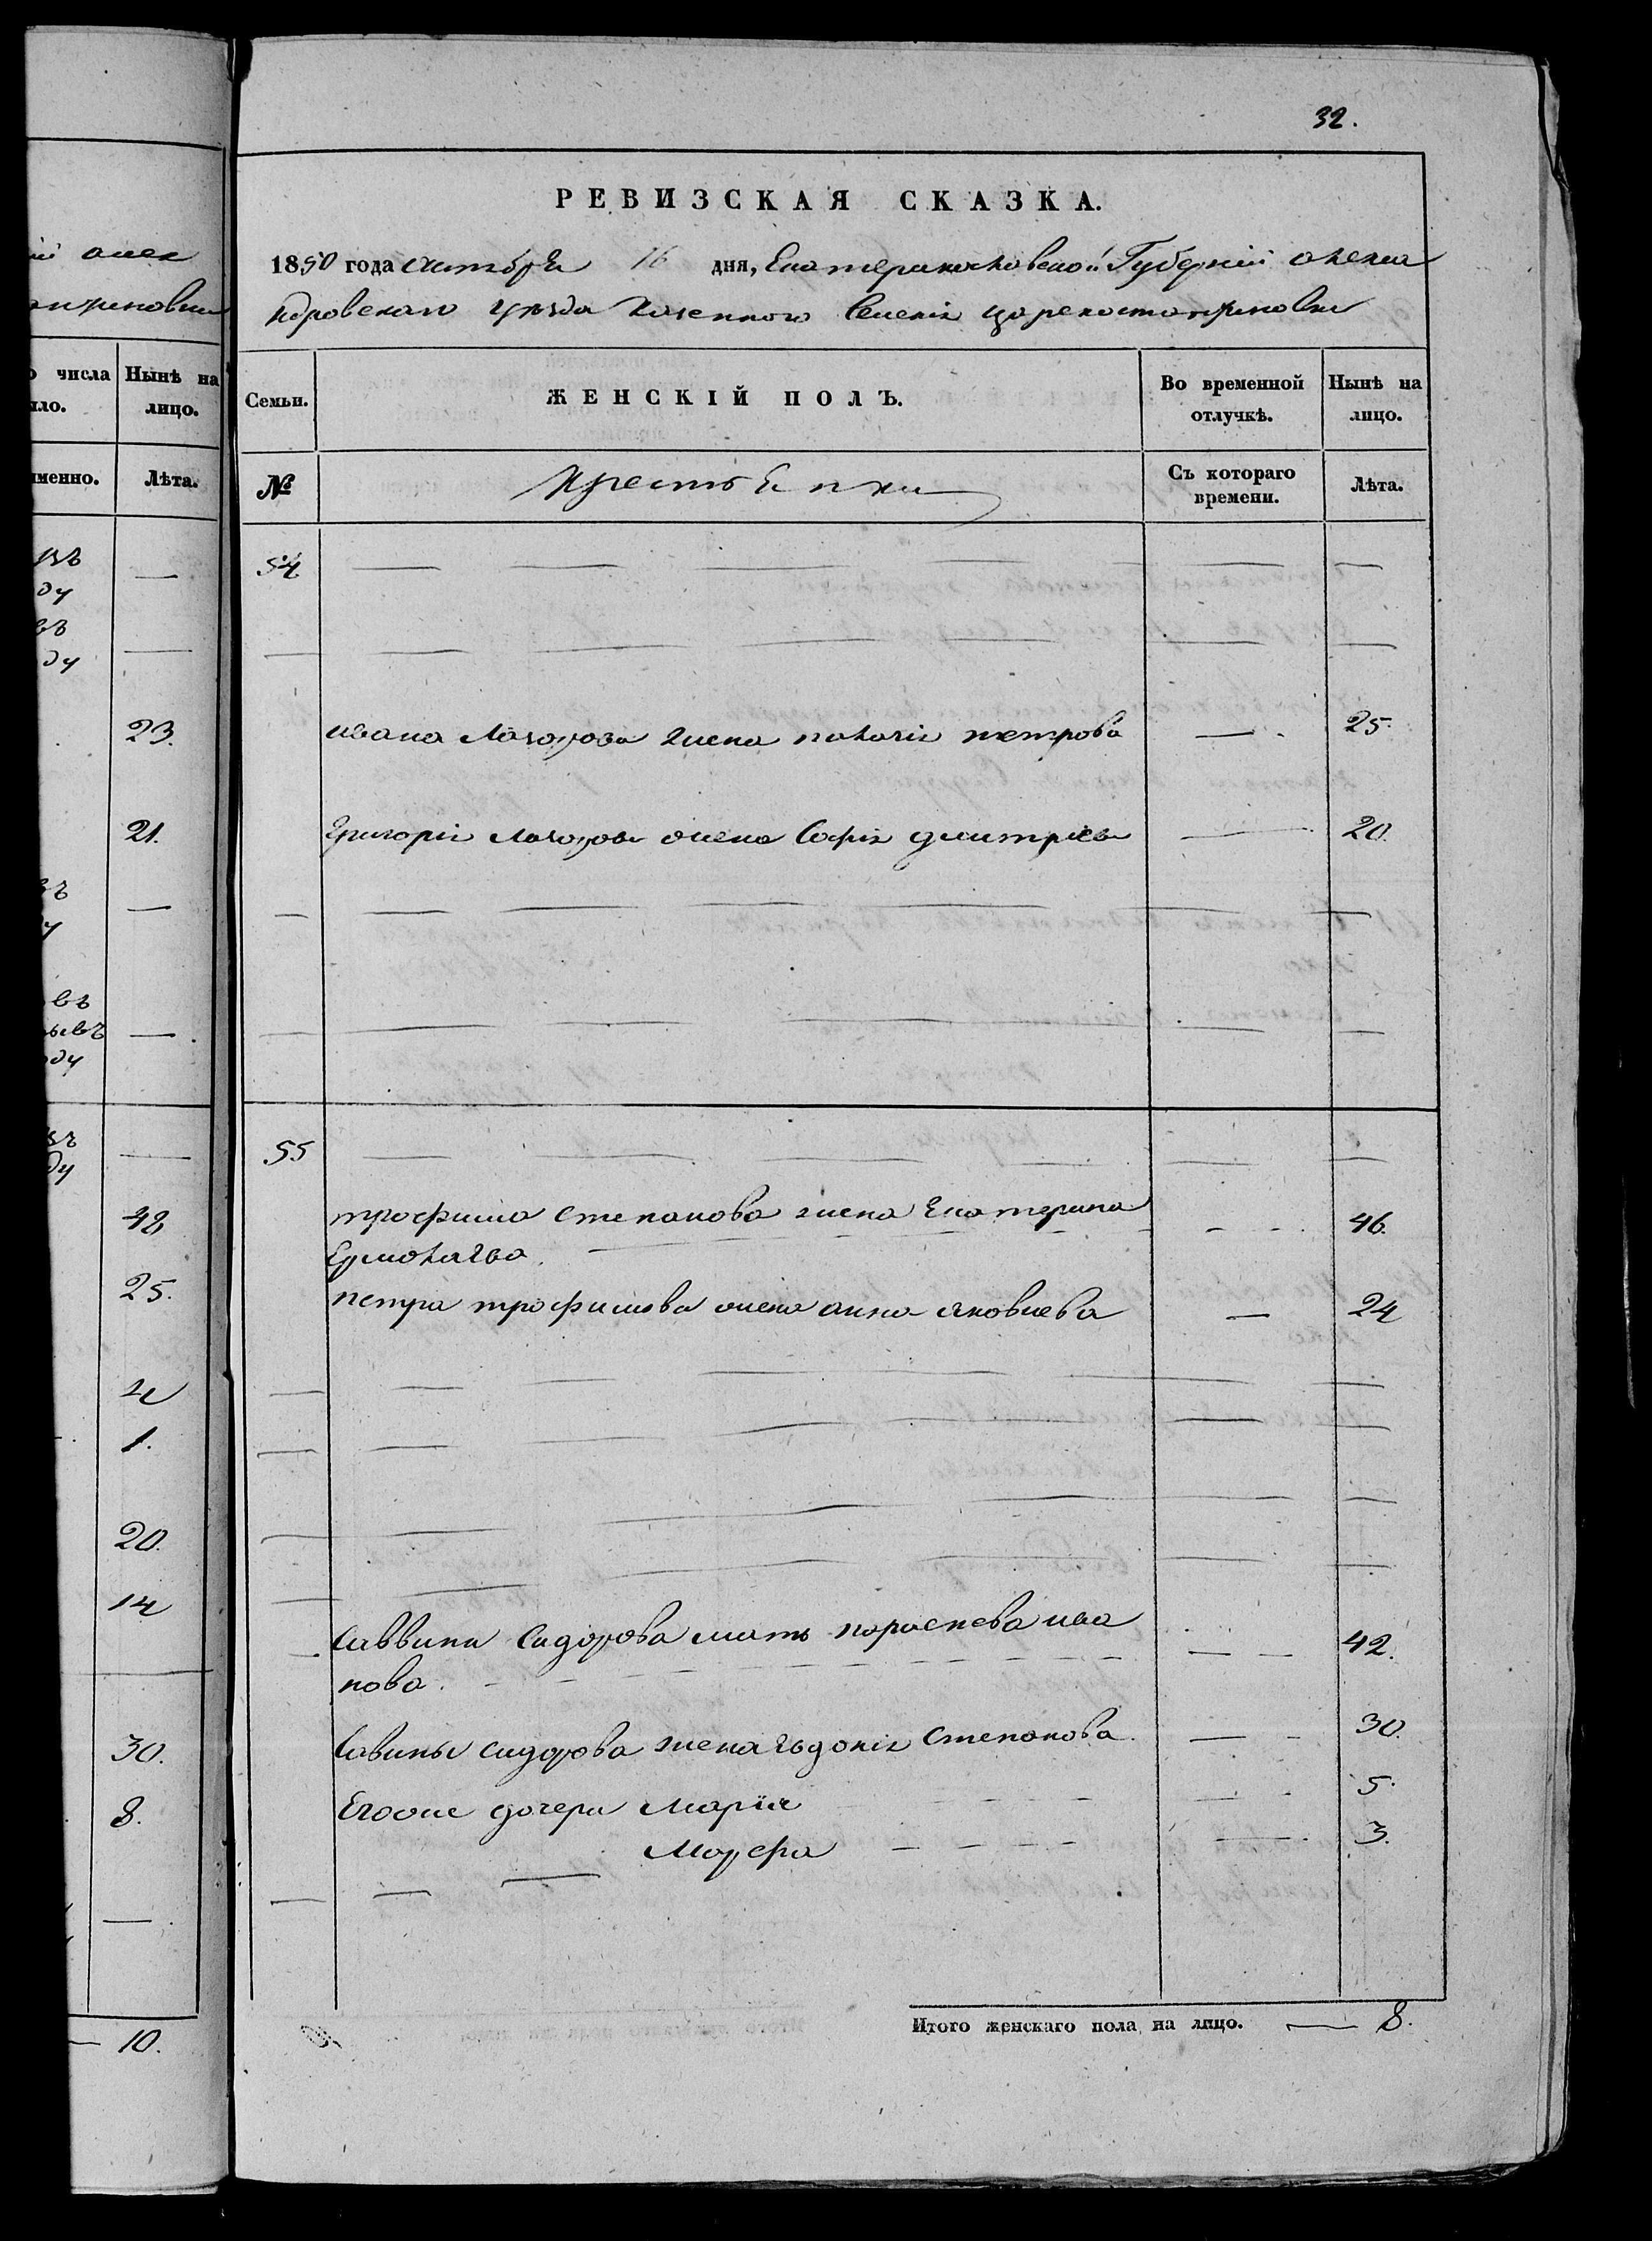 32.
РЕВИЗСКАЯ СКАЗКА.
1850 года октября 16 дня, Екатеринославской Губернии алекса
ндровскаго уезда казенного селения цареконстантиновки
Семьи.
ЖЕНСКІЙ ПОЛЪ.
Во временной отлучкѣ.
Нынѣ на лицо.
№
Крестьянки
Съ котораго времени.
Лѣта.
54
ивана жена петрова 25.
григория жена София дмитриева 20.
55
трофима степанова жена Екатерина 46.
Ермолаева.
петра трофимова жена анна яковлева 24
Саввины Сидорова мать параскева ива 42.
нова.
Савины сидорова жена евдокия Степанова. 30.
Егоже дочери Мария 5.
Марфа 3.
Итого женскаго пола на лицо. 8.
алек
числа
Нынѣ на лицо.
именно.
Лѣта.
23.
21.
48
25.
4
1.
20.
14
30.
8.
10.